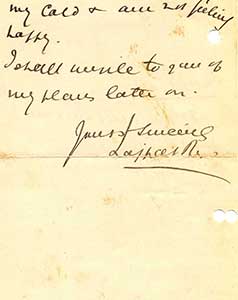 my cold & am not feeling
happy.
I shall write to you of
my plans later on.
Yours Sincerely
Lajpat Rai